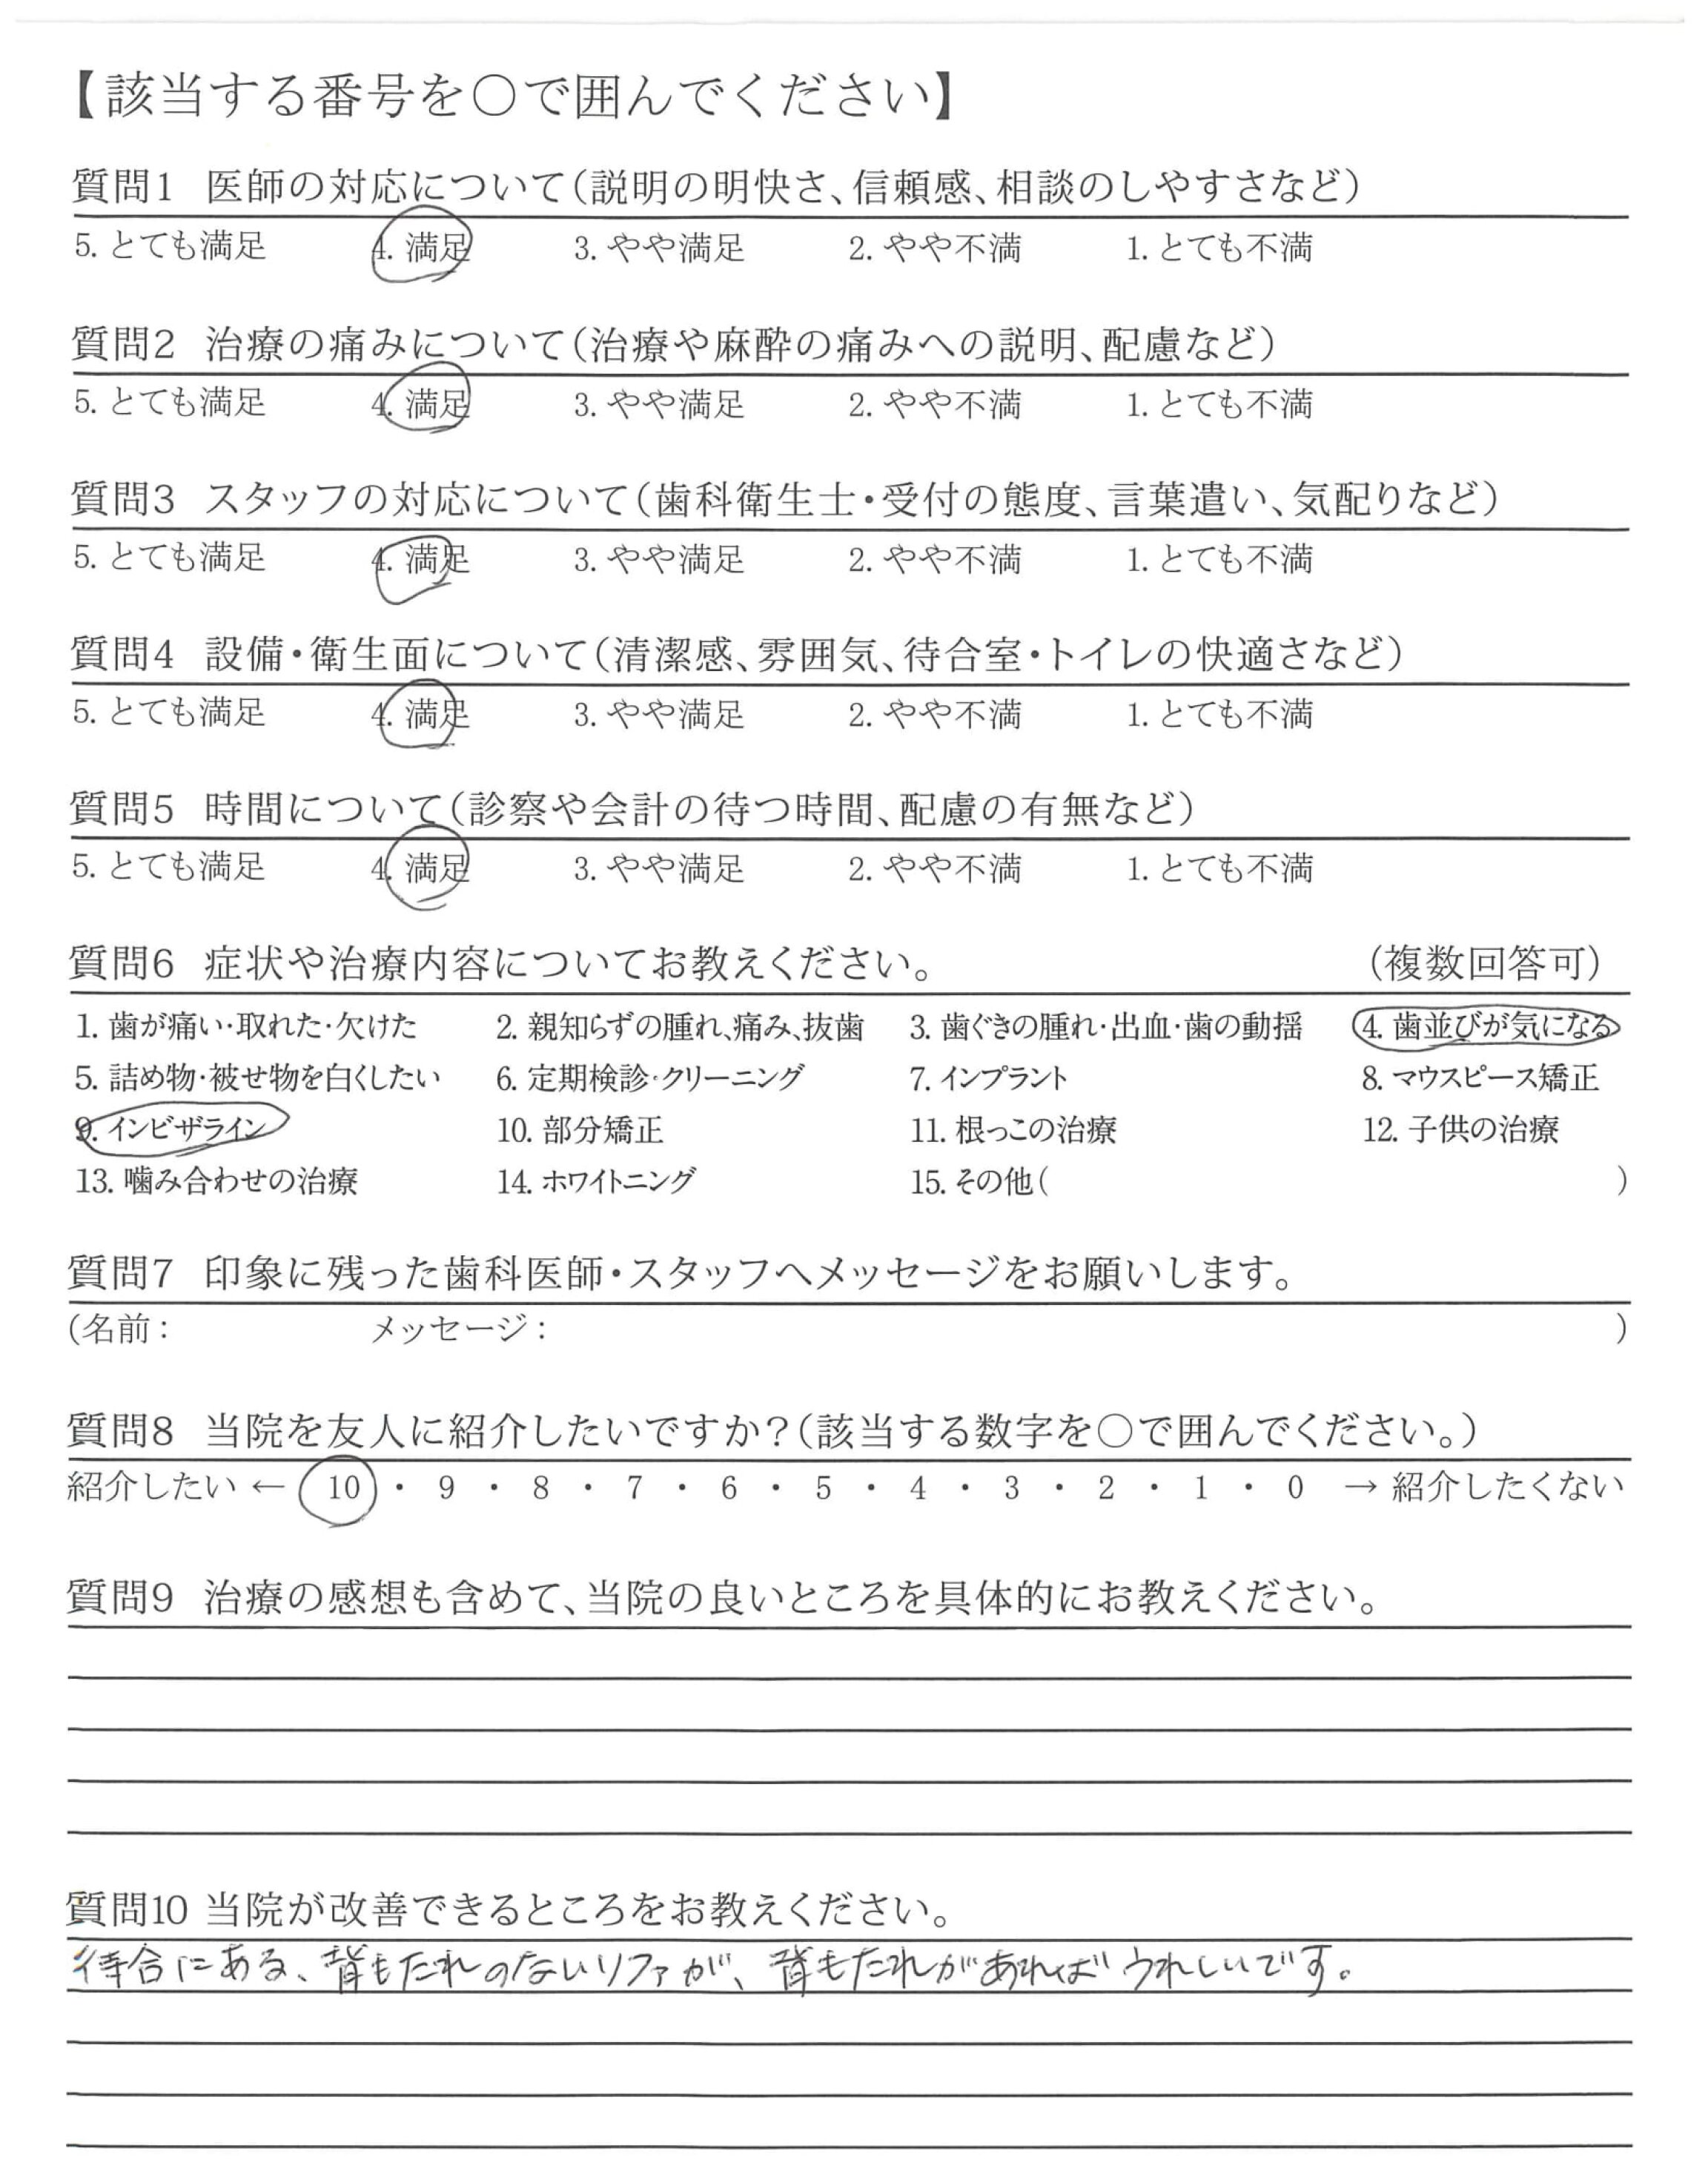 【該当する番号を○で囲んでください】
質問1 医師の対応について(説明の明快さ、信頼感、相談のしやすさなど)
5. とても満足 4. 満足 3. やや満足 2. やや不満 1. とても不満
質問2 治療の痛みについて(治療や麻酔の痛みへの説明、配慮など)
5. とても満足 4. 満足 3. やや満足 2. やや不満 1. とても不満
質問3 スタッフの対応について(歯科衛生士・受付の態度、言葉遣い、気配りなど)
5. とても満足 4. 満足 3. やや満足 2. やや不満 1. とても不満
質問4 設備・衛生面について(清潔感、雰囲気、待合室・トイレの快適さなど)
5. とても満足 4. 満足 3. やや満足 2. やや不満 1. とても不満
質問5 時間について(診察や会計の待つ時間、配慮の有無など)
5. とても満足 4. 満足 3. やや満足 2. やや不満 1. とても不満
質問6 症状や治療内容についてお教えください。 (複数回答可)
1. 歯が痛い・取れた・欠けた 2. 親知らずの腫れ、痛み、抜歯 3. 歯ぐきの腫れ・出血・歯の動揺 4. 歯並びが気になる
5. 詰め物・被せ物を白くしたい 6. 定期検診・クリーニング 7. インプラント 8. マウスピース矯正
9. インビザライン 10. 部分矯正 11. 根っこの治療 12. 子供の治療
13. 噛み合わせの治療 14. ホワイトニング 15. その他( )
質問7 印象に残った歯科医師・スタッフへメッセージをお願いします。
(名前: メッセージ: )
質問8 当院を友人に紹介したいですか?(該当する数字を○で囲んでください。)
紹介したい ← 10 ・ 9 ・ 8 ・ 7 ・ 6 ・ 5 ・ 4 ・ 3 ・ 2 ・ 1 ・ 0 → 紹介したくない
質問9 治療の感想も含めて、当院の良いところを具体的にお教えください。
質問10 当院が改善できるところをお教えください。
待合にある、背もたれのないソファが、背もたれがあればうれしいです。